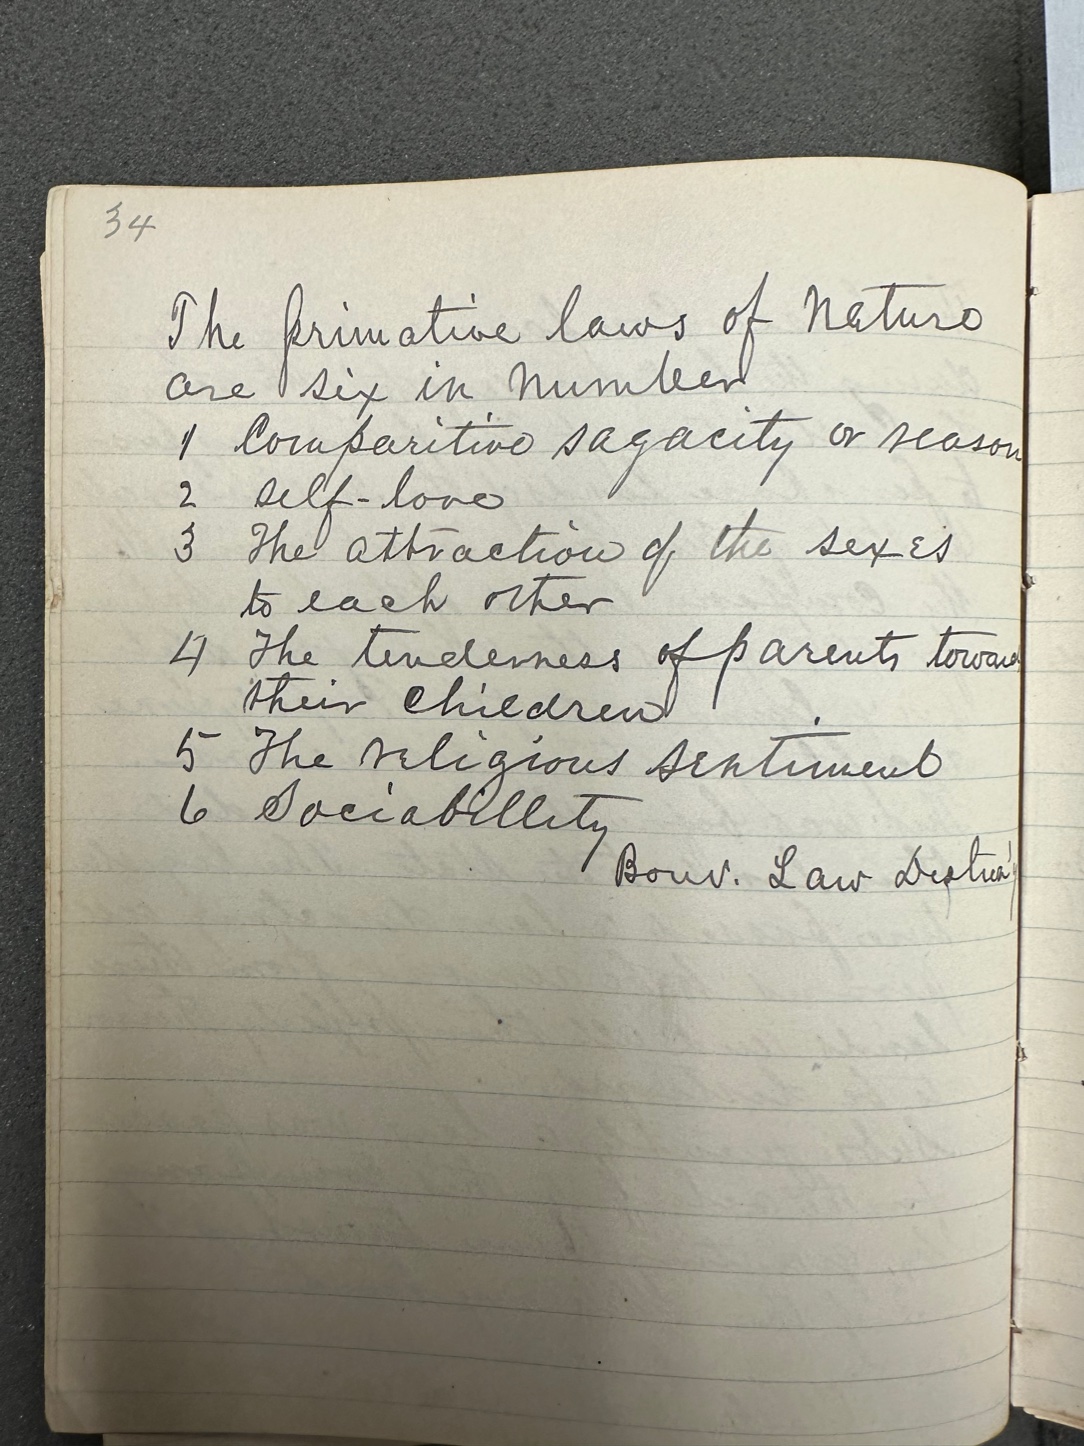 34
The primative laws of Nature
are six in number
1 Comparitive sagacity or reason
2 self-love
3 The attraction of the sexes
to each other
4 The tenderness of parents toward
their children
5 The religious sentiment
6 Sociabillity
Bouv. Law